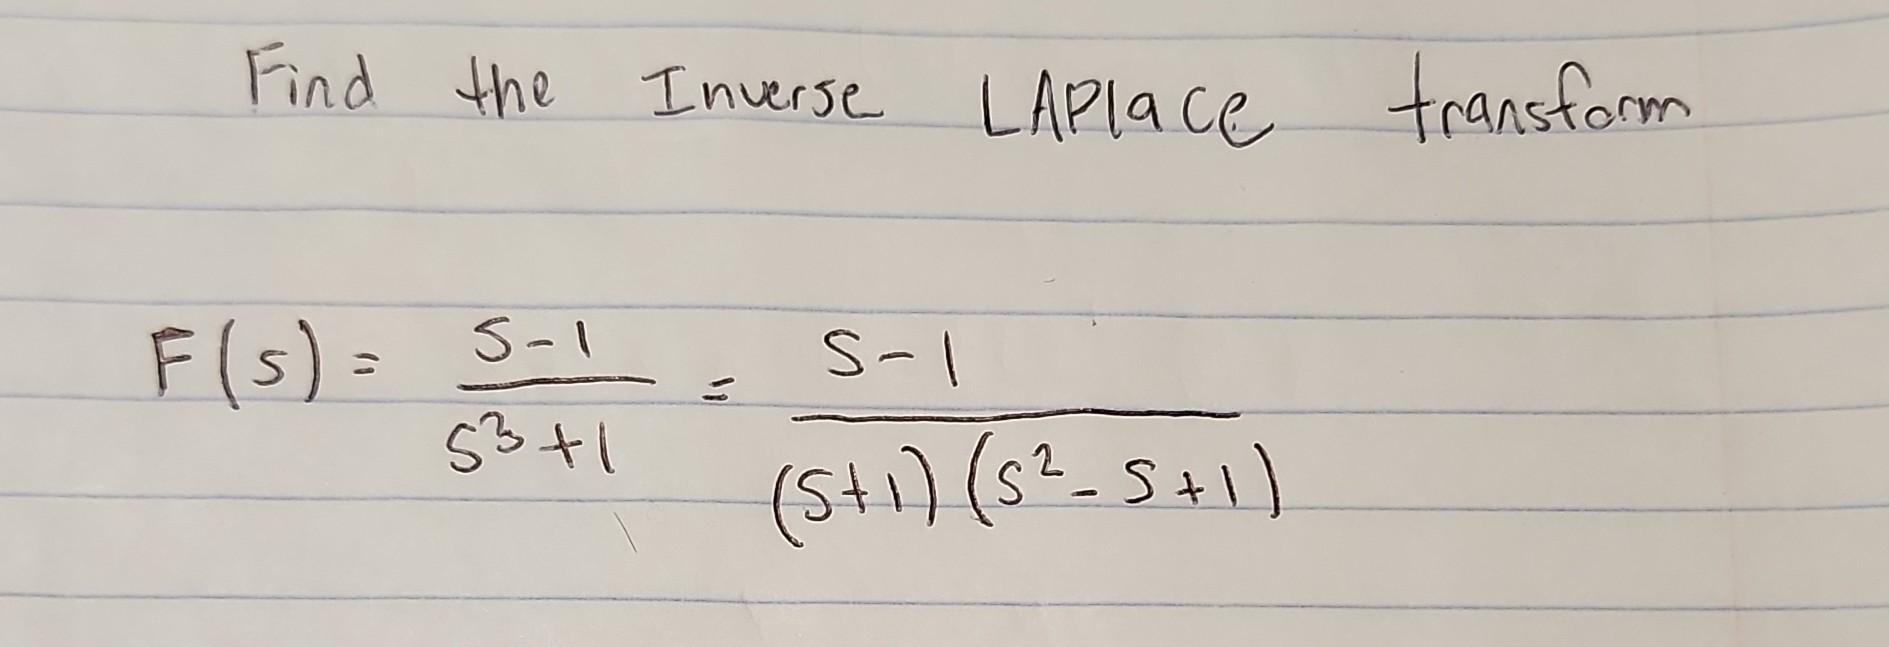 Find the Inverse LAPlace transform
F(s) = \frac{s-1}{s^3+1} = \frac{s-1}{(s+1)(s^2-s+1)}